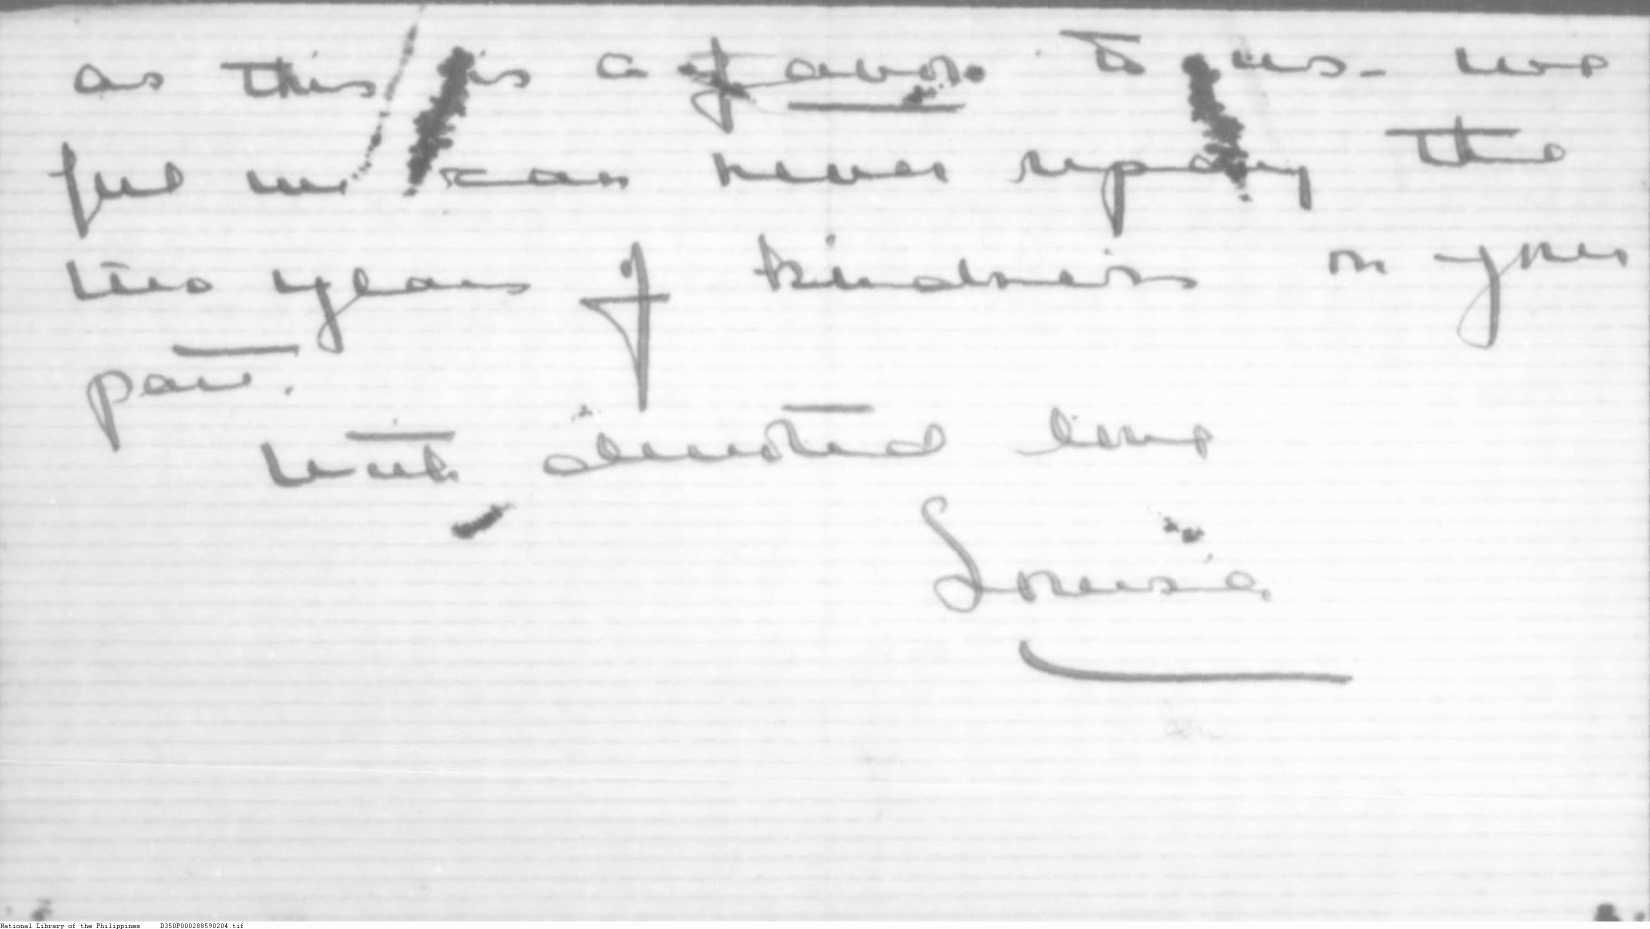 as this is a favor to us - we
feel we can never repay the
two years of kindness on your
part.
with devoted love
Louisa
National Library of the Philippines D350P000288590204.tif